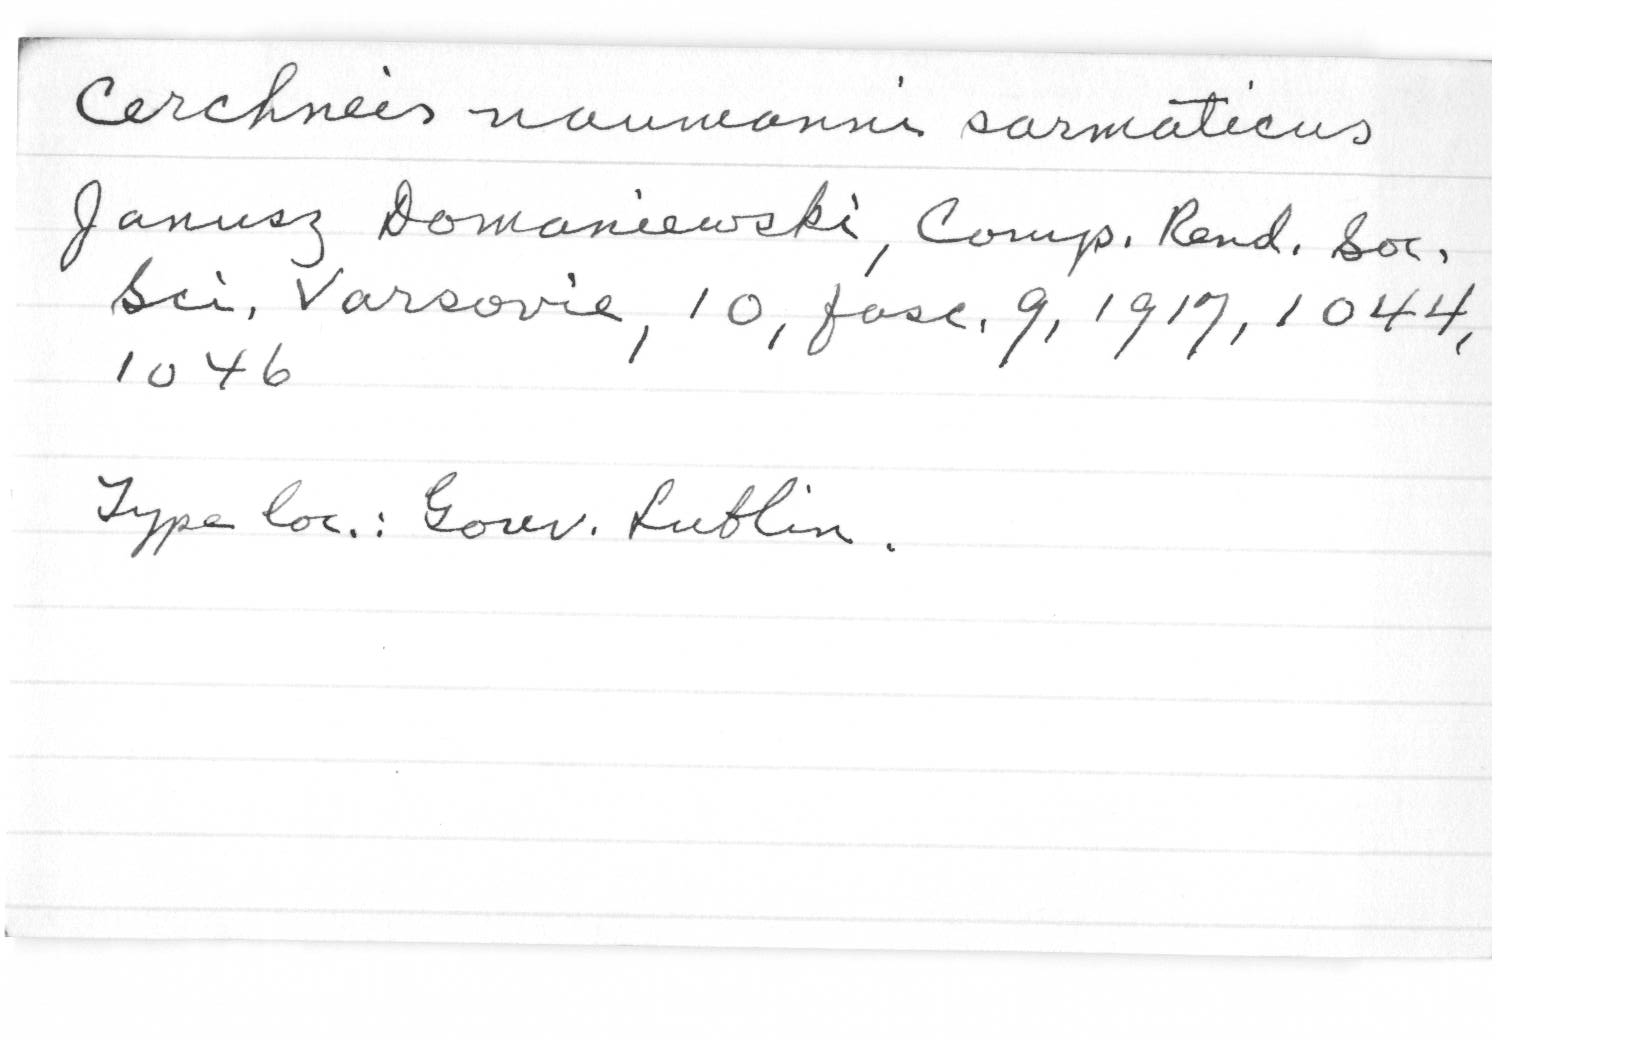 Cerchneis naumanni sarmaticus
Janusz Domaniewski, Comp. Rend. Soc.
Sci. Varsovie, 10, fasc. 9, 1917, 1044,
1046
Type loc.: Gouv. Lublin.